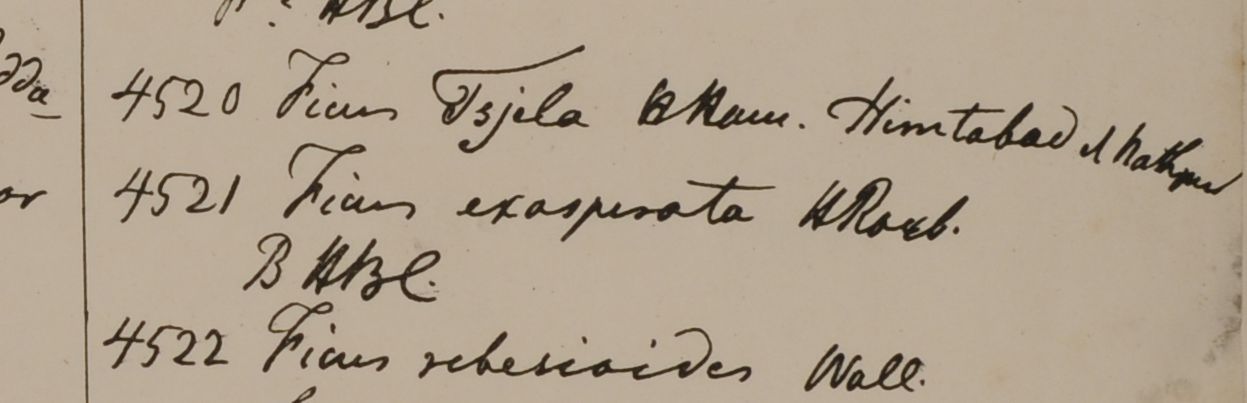 HBC.
4520 Ficus Tsjela HHam. Himtabad & Nathpur
4521 Ficus exasperata HRoxb.
B HBC.
4522 Ficus rebesioides Wall.